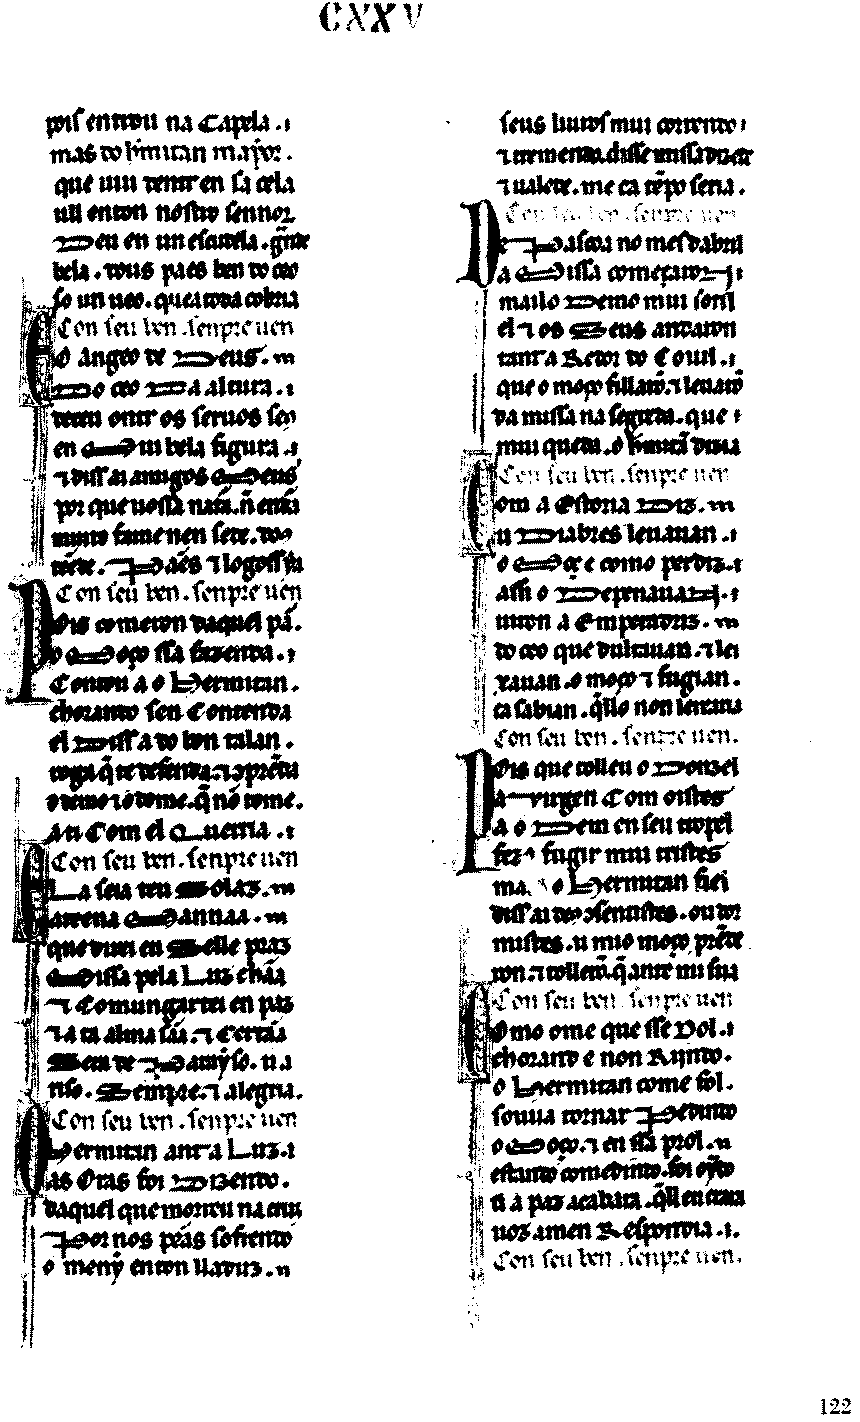 CXXV
pois entrou na Capela . ⁊
mas do hermitan mayor .
que uiu tẽer en sa cela
ali enton nostro sennor
Deu en un escudela . grãde
bela . dous pães ben do ceo
so un ueo . que a toda cobria
Con seu ben . senpre uen
O angeo de Deus .
Do ceo Da altura . ⁊
deceu ontr os seruos seꝯ
en Mui bela figura . ⁊
⁊ diss ai amigos Meus
por que uossa natã. nẽ enũ
muito fame nen sete .
Pães ⁊ logo ss
Con seu ben . senpre uen
Pois comeron daquel pã .
o Moço ssa fazenda . ⁊
Contou a o Hermitan .
chorando sen Contenda
el Diss a do bon talan .
roga q̃ te defenda . ⁊ ꝯprẽda
o demo ⁊ o dome . q̃ nõ tome .
an Com el Queria . ⁊
Con seu ben . senpre uen
E La seia teu Solaz .
arrena Mannãa .
que direi en Seelle praz
Missa pela Luz chãa
⁊ Comungar ei en paz
⁊ a ta alma sãa . ⁊ Certãa
Sera de Paraýso .
riso . Sempre . ⁊ alegria .
Con seu ben . senpre uen
O hermitan ant a Luz . ⁊
as Oras foi Dizendo .
daquel que morreu na cruz
Por nos pẽas sofrendo
o meninỹ enton lladuz .
seus liuros mui correndo ⁊
⁊ tremendo . disse missa
⁊ ualete . me ca tẽpo seria .
Con seu ben . senpre uen
De Pascoa no mes dabril
a Missa começaron ⁊
mailo Demo mui soril
el ⁊ os Seus andaron
tant a Redor do Couil . ⁊
que o moço fillarõ . ⁊ leuarõ
da missa na segreda . que ⁊
mui queda . o hermitã dizia
Con seu ben . senpre uen
Com a Estoria Diz .
u Diabres leuauan . ⁊
o Moç e como perdiz . ⁊
assi o Depenauan . ⁊
uiron a Emperadriz .
do ceo que uĩlliauan . ⁊ lei
xauan . o moço ⁊ fugian .
ca sabian . q̃llo non leixaria
Con seu ben . senpre uen .
Pois que tolleu o Donzel
a Virgen Com oistes
a o Dem en seu tropel
fez⁊ fugir mui tristes
ma o Hermitan fiel
diss ai deꝯ ꝯsentistes . ou dor
mistes . u mio moço prẽde
ron . ⁊ tollerõ . q̃ ante mi siia
Con seu ben . senpre uen
Como ome que sse Dol . ⁊
chorando e non Rijndo .
o hermitan come sol .
souua tornar Pedindo
o Moço . ⁊ en ssa prol .
estando comedindo . foi oỹdo
u a paz acabara . q̃ll en crara
uoz amen Respondia . ⁊ .
Con seu ben . senpre uen .
122